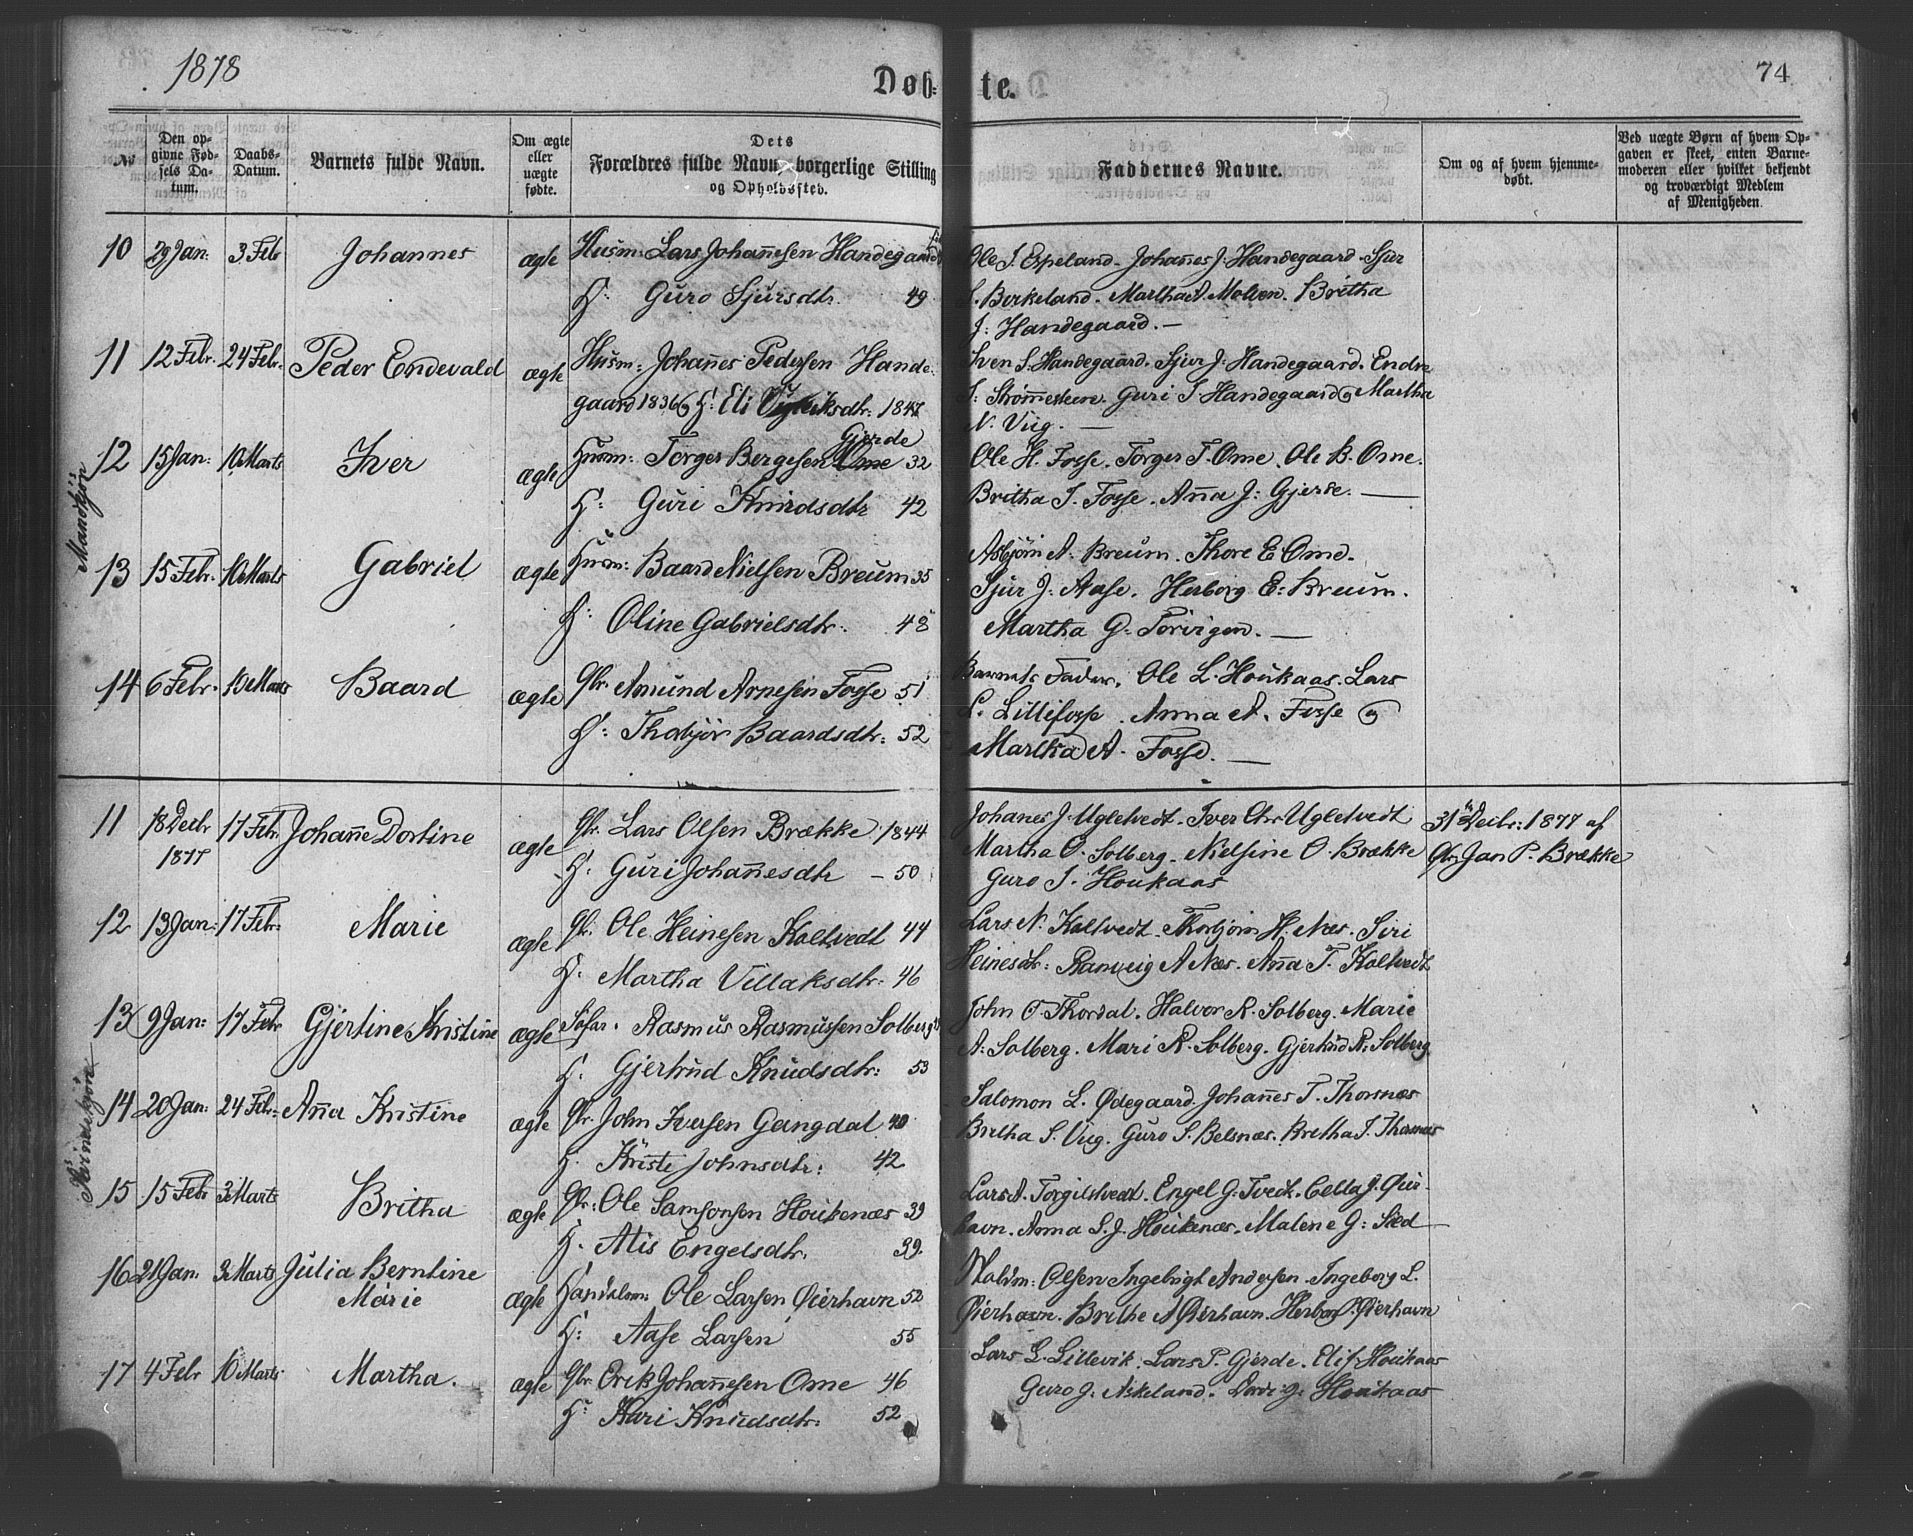 1878
Døbte.
74
No
Den opgivne Fødsels Datum.
Daabs-Datum.
Barnets fulde Navn.
Om ægte eller uægte fødte.
Dets Forældres fulde Navn, borgerlige Stilling og Opholdssted.
Faddernes Navne.
Om og af hvem hjemmedøbt.
Ved uægte Børn af hvem Opgaven er skeet, enten Barnemoderen eller hvilket bekjendt og troværdigt Medlem af Menigheden.
Mandkjøn
10 29 Jan: 3 Febr Johannes ægte Husm: Lars Johannesen Handegaard
H: Guro Sjursdtr. 49
Ole S. Espeland. Johannes J. Handegaard. Sjur
S. Berkeland. Martha A. Molven. Britha
J: Handegaard. —
11 12 Febr. 24 Febr. Peder Endevald ægte Husm: Johannes Pedersen Hande-
gaard 1836 og H: Eli 1847
Sven S. Handegaard. Sjur J: Handegaard. Endre
I: Strømmesteen. Guri S Handegaard og Martha
N. Viig. —
12 15 Jan: 10 Marts Iver ægte Husm: Torger Bergesen Gjerde 32
H: Guri Knudsdtr 42
Ole H. Fosse. Torger T. Ome. Ole B. Ome.
Britha I. Fosse. Anna J: Gjerde. —
13 15 Febr. 10 Marts Gabriel ægte Husm: Baard Nielsen Breum 35
H: Oline Gabrielsdtr. 48
Asbjørn A. Breum. Thore E Ome.
Sjur J. Aase. Herborg E. Breum.
Martha G. Tørvigen. —
14 6 Febr. 10 Marts Baard ægte Gbr. Amund Arnesen Fosse 51
H: Thobjør Baardsdtr. 52
Barnets Fader. Ole L. Houkaas. Lars
L. Lillefosse. Anna A. Fosse og
Martha A. Fosse. —
Kvindekjøn
11 18 Decbr 1877 17 Febr. Johanne Dortine ægte Gbr. Lars Olsen Brække 1844
H. Guri Johannesdtr — 50
Johanes J. Ugletvedt. Iver Chr Ugletvedt
Martha O. Solberg. Nielsine O. Brække
Guro I. Houkaas
31te Decbr: 1877 af
Gbr Jan P. Brække
12 13 Jan: 17 Febr. Marie ægte Gbr. Ole Heinesen Koltvedt 44
H. Martha Villaksdtr. 46
Lars N. Koltvedt. Thorbjørn H. Næs. Siri
Heinesdtr. Ranveig A Næs. Anna T. Koltvedt
13 9 Jan: 17 Febr Gjertine Kristine ægte Søfar. Rasmus Rasmussen Solberg
H. Gjertrud Knudsdtr: 53
John O Thorsdal. Halvor R. Solberg. Marie
A. Solberg. Mari R. Solberg. Gjertrud R. Solberg
14 20 Jan: 24 Febr. Anna Kristine ægte Gbr. John Iversen Gangdal 40
H. Kristi Johnsdtr: 42
Salomon L. Ødegaard. Johannes T. Thorsnæs
Britha S. Viig. Guro S. Belsnæs. Britha T. Thorsnæs
15 15 Febr 3 Marts Britha ægte Gbr: Ole Samsonsen Houkenæs 39
H. Alis Engelsdtr. 39.
Lars A. Torgilstvedt. Engel G. Tvedt. Cella J. Øier-
havn. Anna S. J. Houkenæs. Malene G:
16 21 Jan: 3 Marts Julia Berntine
Marie ægte Handelsm: Ole Larsen Øierhavn 52
H: Aase Larsen 55
Olsen Ingebrigt Andersen. Ingeborg L.
Øierhavn. Brithe A Øierhavn. Herborg P. Øierhavn
17 4 Febr 10 Marts Martha. ægte Gbr. Erik Johannesen Ome 46
H: Kari Knudsdtr. 52
Lars L. Lillevik. Lars P. Gjerde. Houkaas
Guro J. Askeland. Houkaas